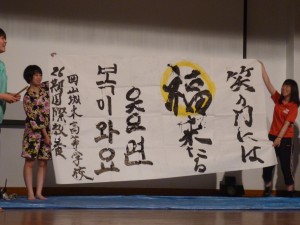 笑う門には
福来たる
웃으면
복이와요
岡山城東高等学校
26期国際教養